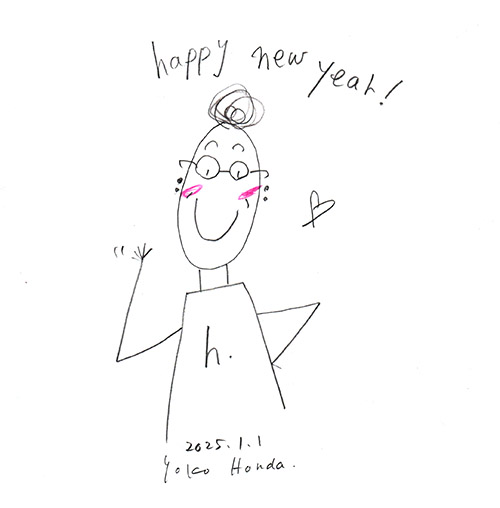 happy new year!
h.
2025.1.1
Yoko Honda.